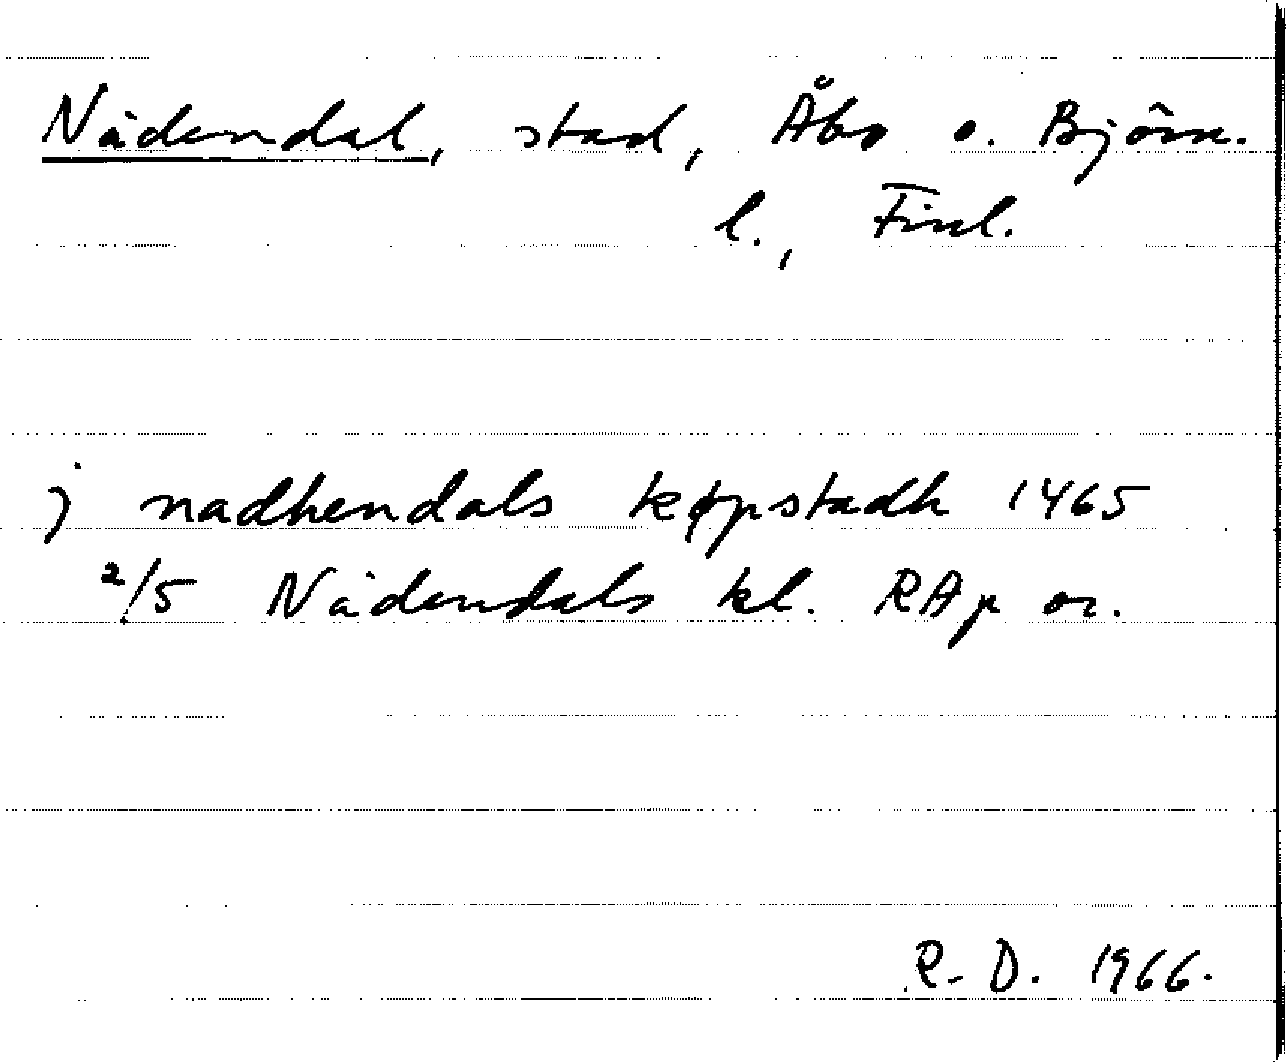 Nådendal, stad, Åbo o. Björn.
l., Finl.
j nadhendals køpstadh 1465
2/5 Nådendals kl. RAp or.
R. D. 1966.